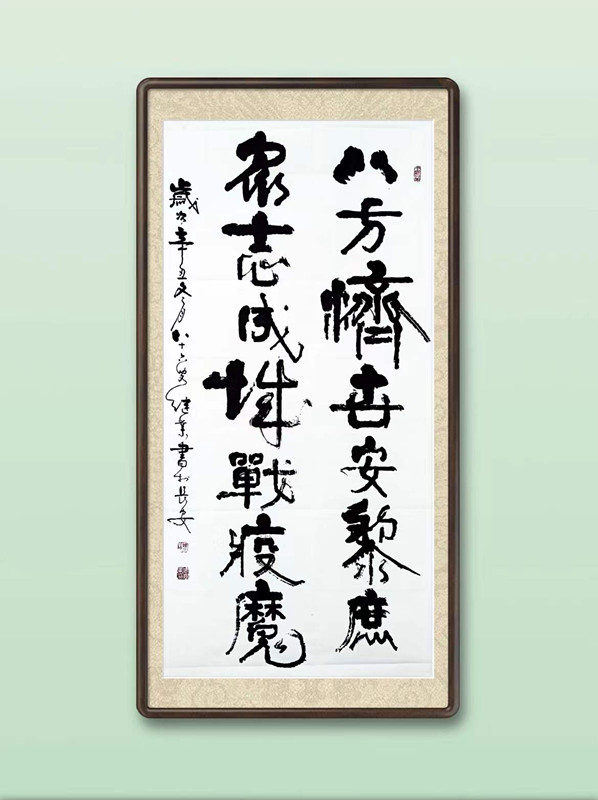 八方濟世安黎庶
眾志成城戰疫魔
歲次辛丑冬月八十六叟继業書於長安